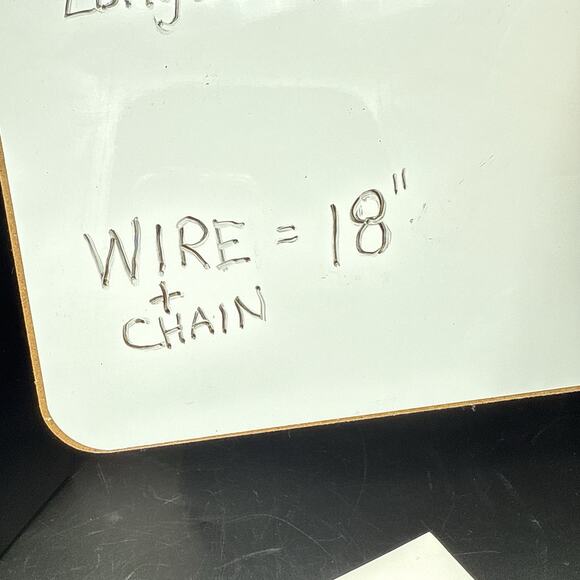 WIRE = 18"
+
CHAIN